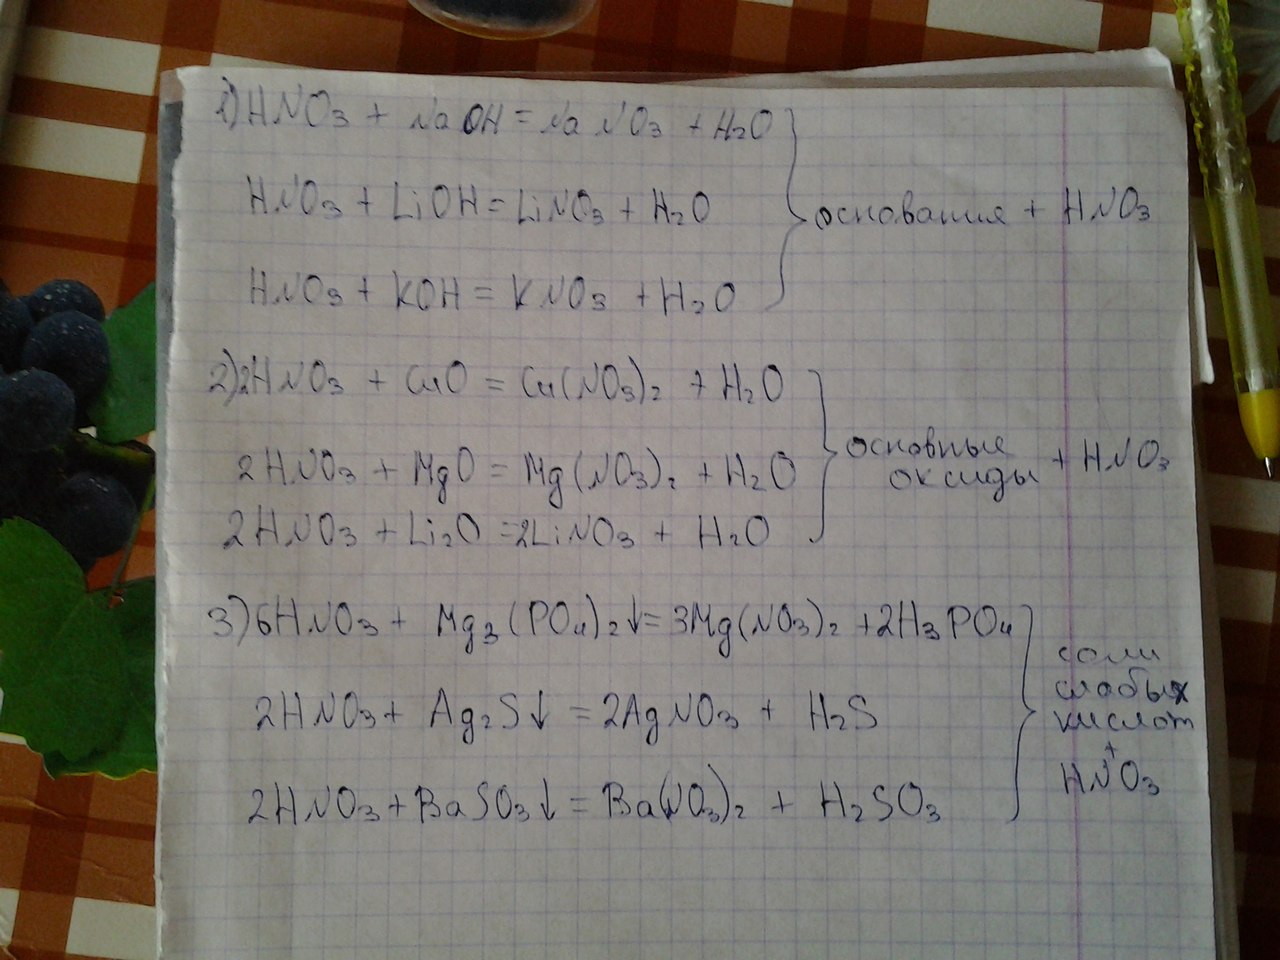 1) HNO3 + NaOH = NaNO3 + H2O
HNO3 + LiOH = LiNO3 + H2O
основания + HNO3
HNO3 + KOH = KNO3 + H2O
2) 2HNO3 + CuO = Cu(NO3)2 + H2O
2HNO3 + MgO = Mg(NO3)2 + H2O
основные
оксиды + HNO3
2HNO3 + Li2O = 2LiNO3 + H2O
3) 6HNO3 + Mg3(PO4)2↓ = 3Mg(NO3)2 + 2H3PO4
2HNO3 + Ag2S↓ = 2AgNO3 + H2S
2HNO3 + BaSO3↓ = Ba(NO3)2 + H2SO3
соли
слабых
кислот
+
HNO3